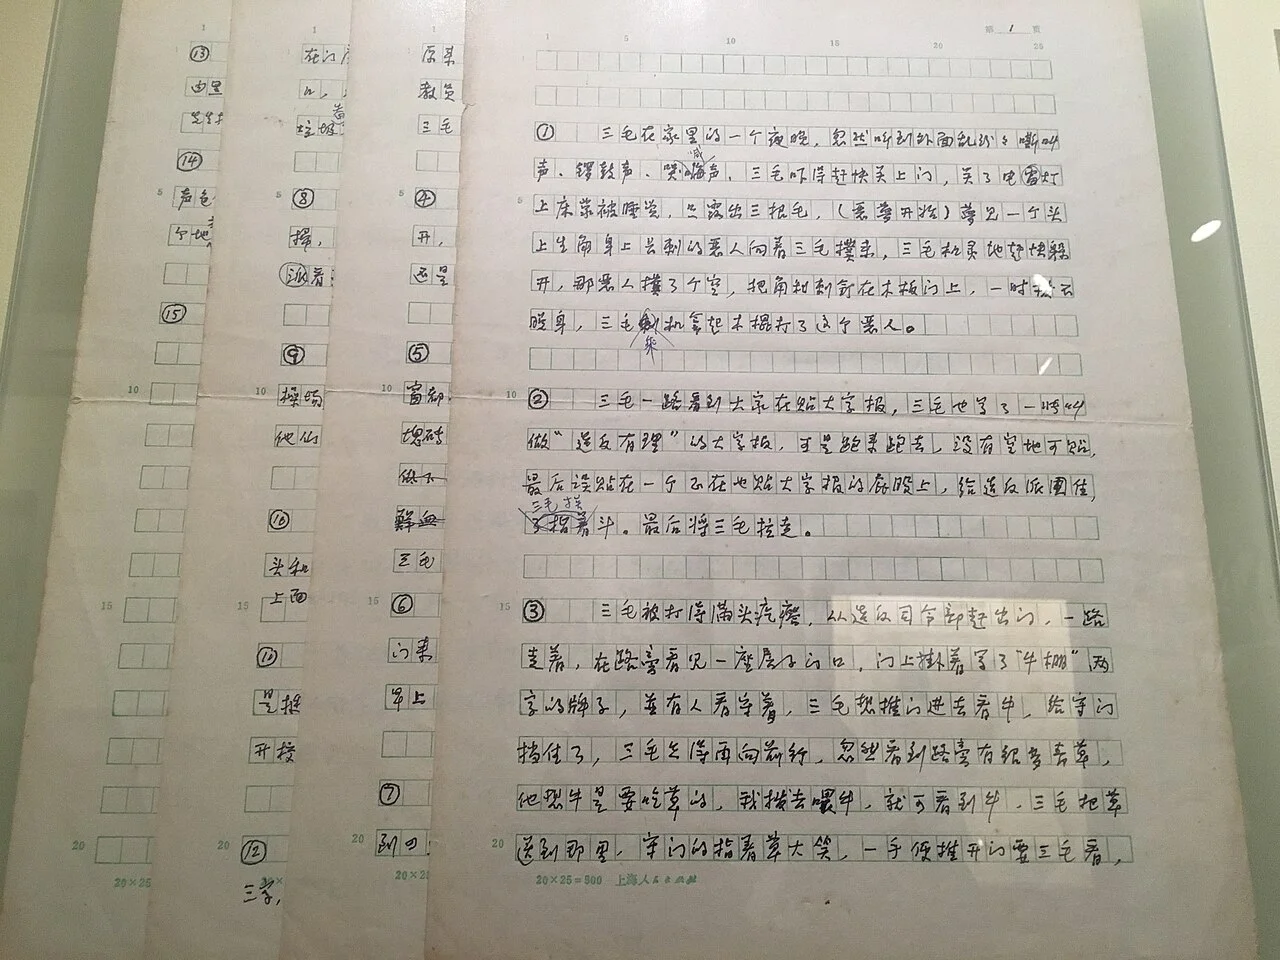 第 1 页
1 5 10 15 20 25
① 三毛在家里的一个夜晚，忽然听到外面乱哄哄嘶叫
声、锣鼓声、哭喊声，三毛吓得赶快关上门，关了电灯
上床蒙被睡觉，只露出三根毛，（恶梦开始）梦见一个头
上生角身上长刺的恶人向着三毛扑来，三毛机灵地赶快躲
开，那恶人扑了个空，把角和刺钉在木板门上，一时拔不
脱身，三毛乘机拿起木棍打了这个恶人。
② 三毛一路看到大家在贴大字报，三毛也写了一张叫
做“造反有理”的大字报，可是跑来跑去，没有空地可贴，
最后误贴在一个正在也贴大字报的屁股上，给造反派围住，
三毛挨
了揪着斗。最后将三毛拉走。
③ 三毛被打得满头疙瘩，从造反司令部赶出门，一路
走着，在路旁看见一座房子门口，门上掛着写了“牛棚”两
字的牌子，並有人看守着，三毛想推门进去看牛，给守门
挡住了，三毛只得再向前行，忽然看到路旁有很多青草，
他想牛是要吃草的，我拔去喂牛，就可看到牛，三毛把草
送到那里，守门的指着草大笑，一手便推开门要三毛看，
20×25=500 上海人民出版社
原来
教员
三毛
④
开，
还是
⑤
窗都
塊砖
鲜血
三毛
⑥
门来
早上
⑦
到四
20×25
在门
口，
垃圾
⑧
掃，
派着
⑨
操场
他仙
⑩
头和
上面
⑪
是推
开
⑫
三字，
⑬
由里
先生
⑭
声色
个地
⑮
20×25